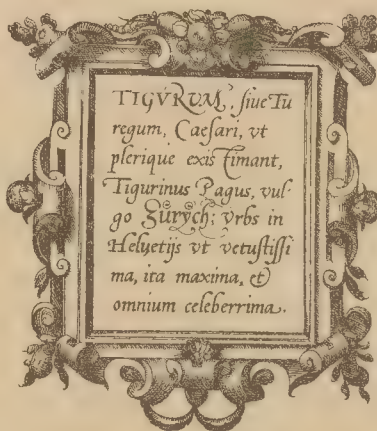 TIGVRVM, ſiue Tu
regum, Caeſari, vt
plerique exiſtimant,
Tigurinus Pagus, vul-
go Zürÿch; vrbs in
Heluetijs vt vetuſtiſſi
ma, ita maxima, et
omnium celeberrima.